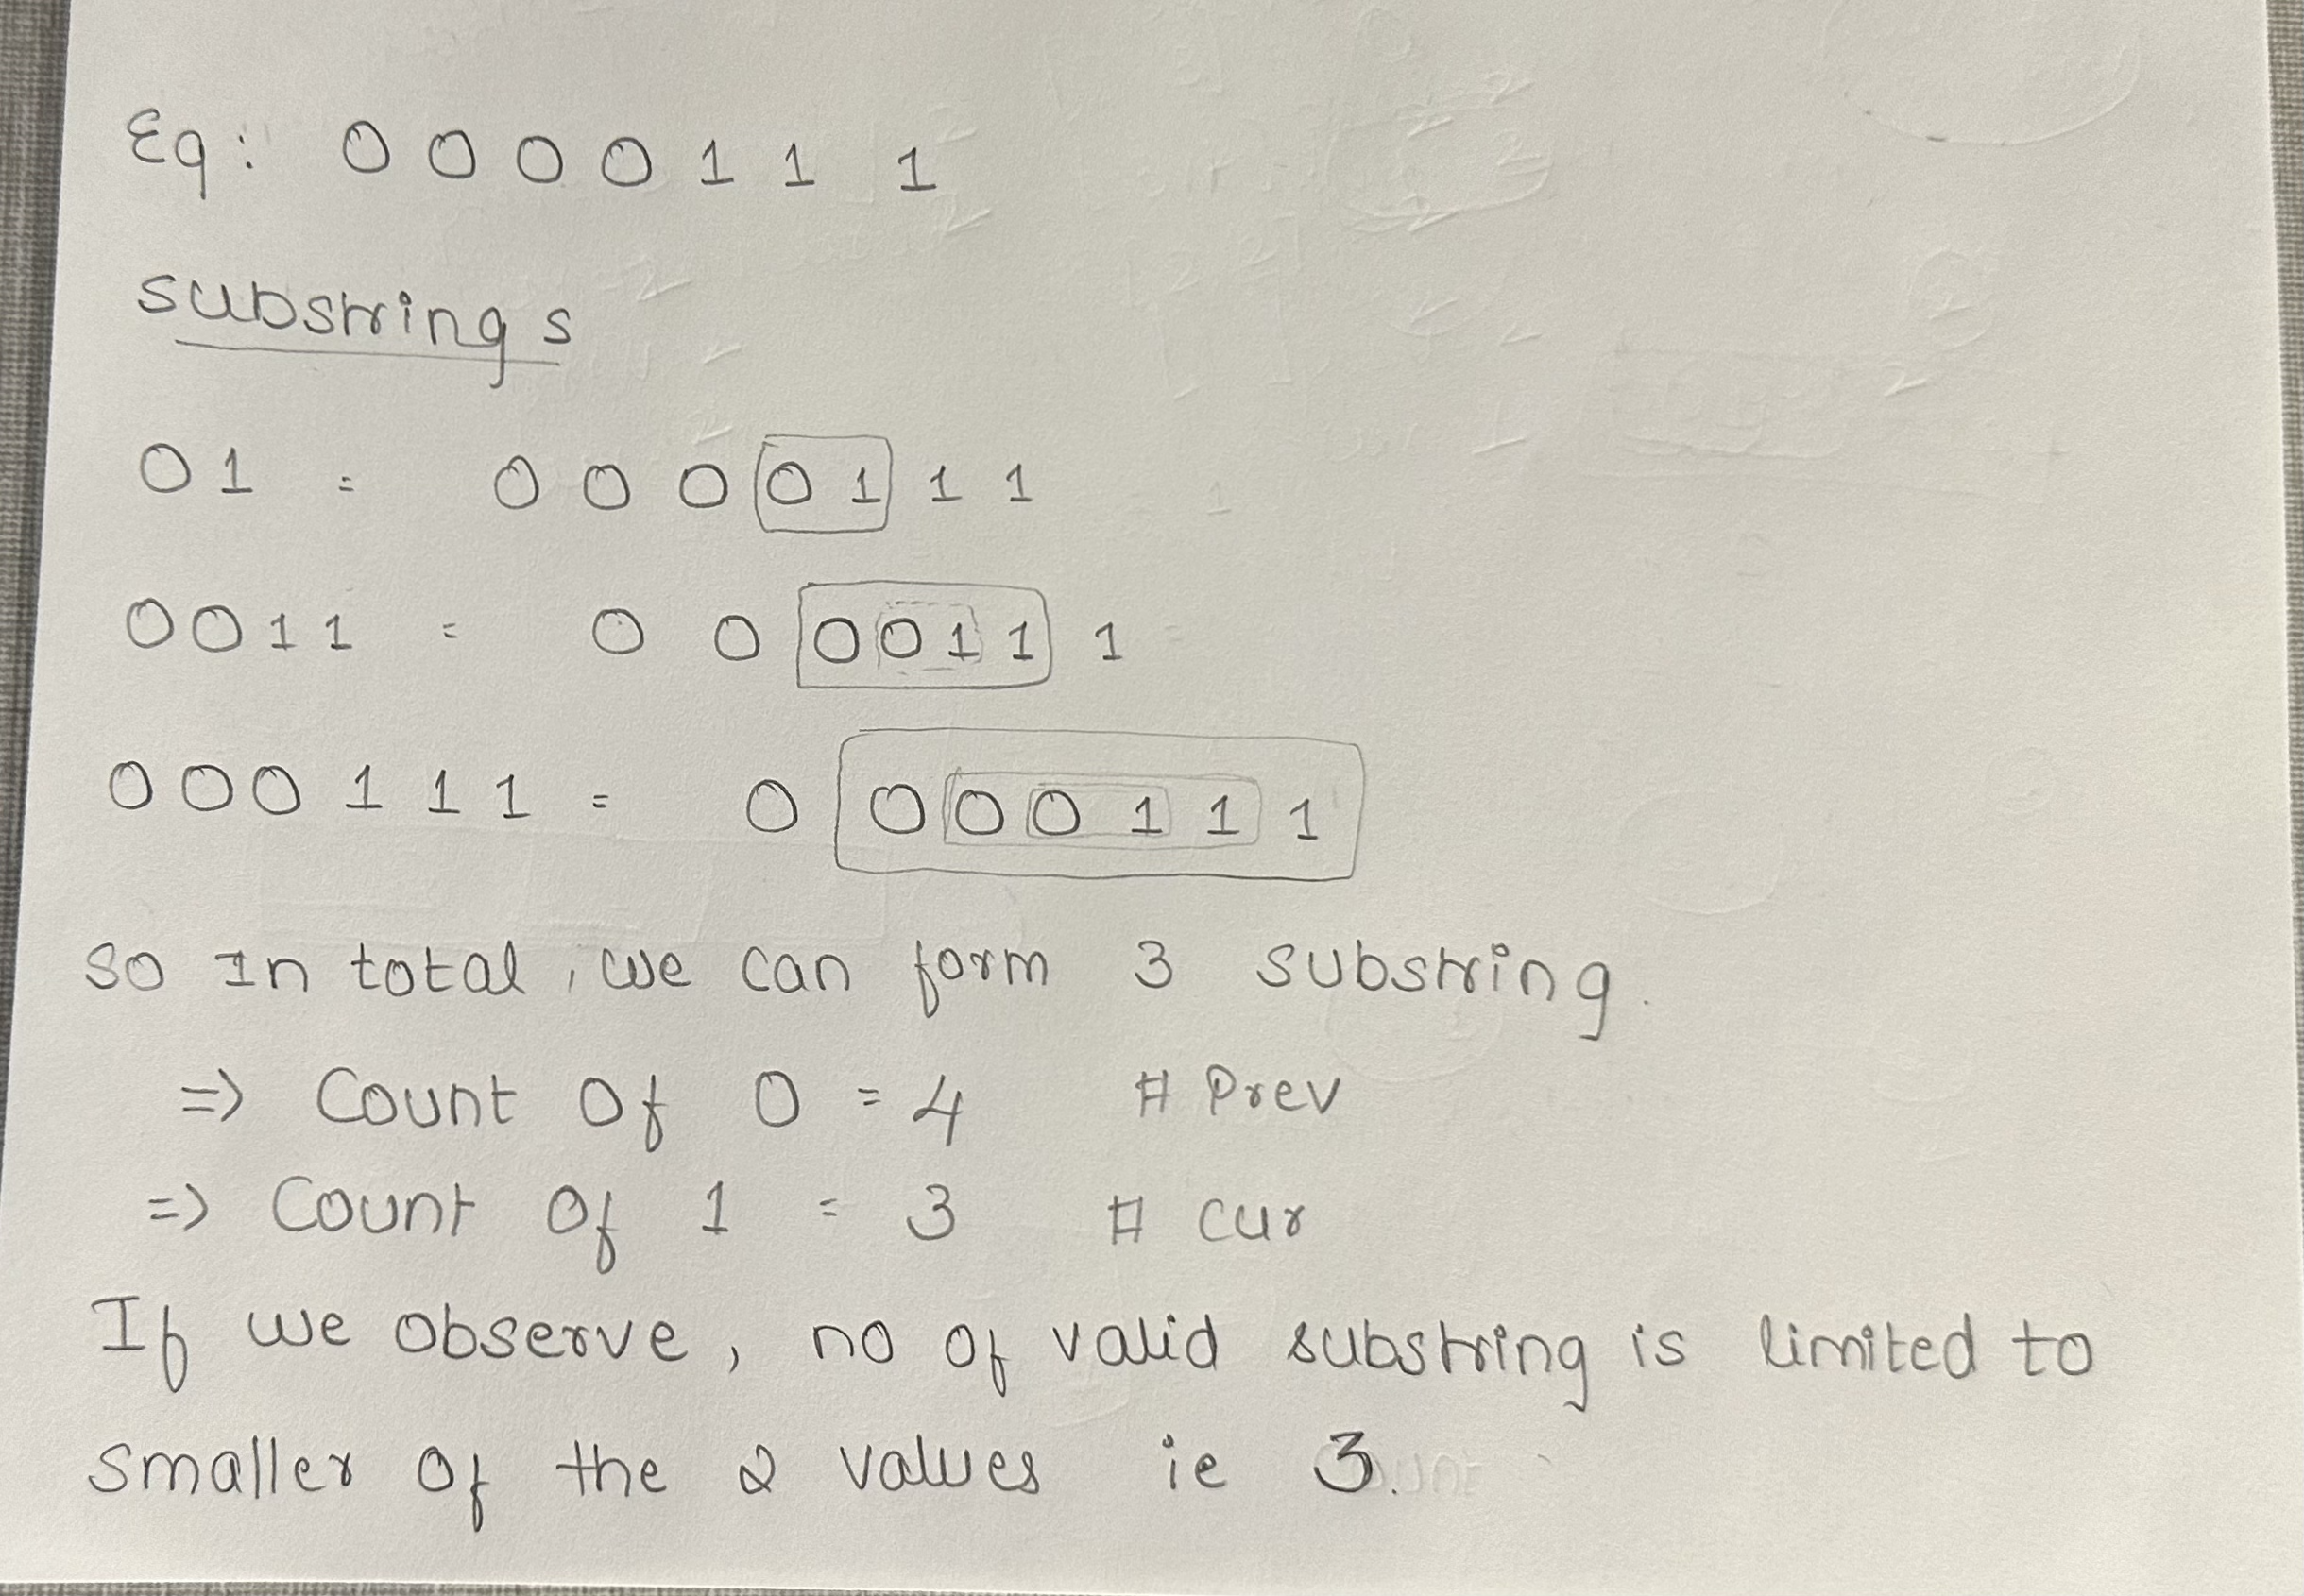 Eg: 0 0 0 0 1 1 1
substrings
01 = 0 0 0 0 1 1 1
0011 = 0 0 0 0 1 1 1
000 1 1 1 = 0 0 0 0 1 1 1
so In total, we can form 3 substring.
=> Count Of 0 = 4 # Prev
=> Count Of 1 = 3 # cur
If we observe, no of valid substring is limited to
smaller of the 2 values ie 3.